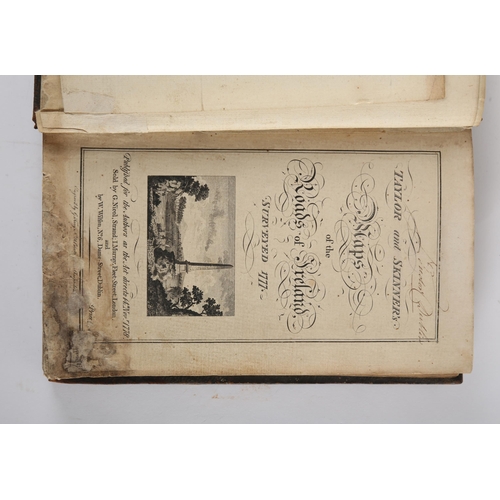 TAYLOR and SKINNER'S
Maps
of the
Roads of Ireland,
SURVEYED 1777.
Publish'd for the Authors as the Act directs 14th Novr. 1778
Sold by G. Nicol, Strand, I. Murray, Fleet-Street, London,
and
by W. Wilson, No. 6, Dame-Street, Dublin